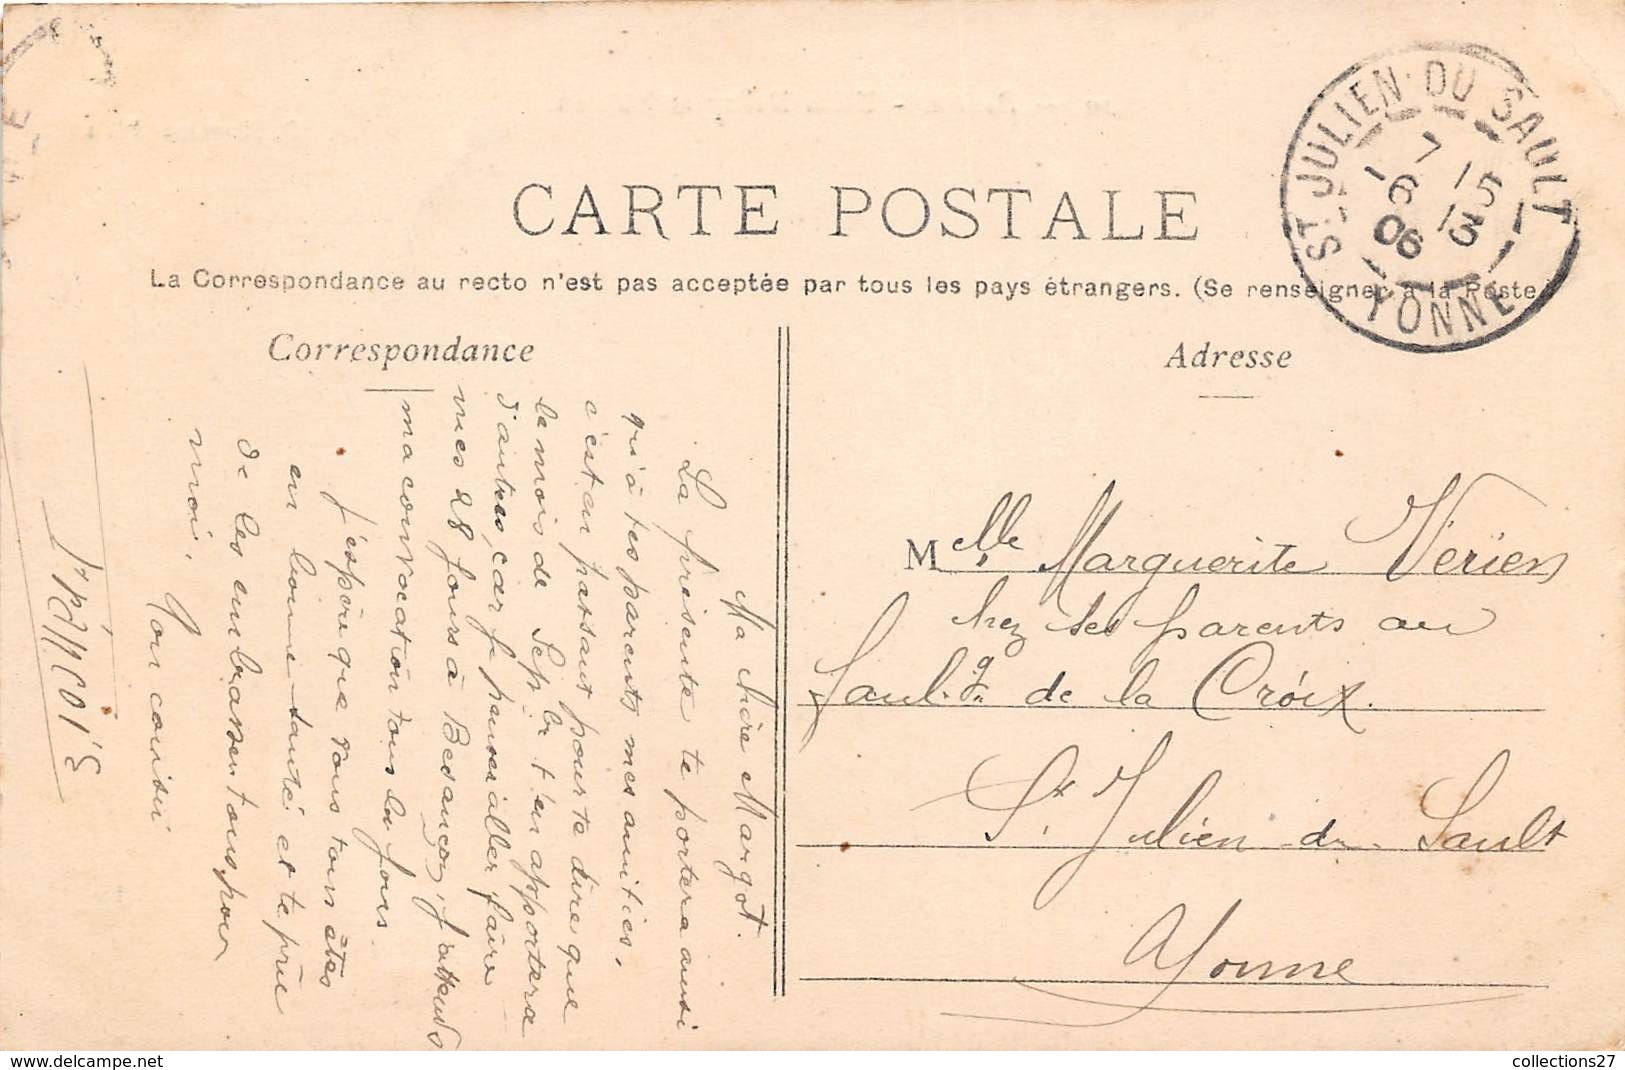 CARTE POSTALE
La Correspondance au recto n'est pas acceptée par tous les pays étrangers. (Se renseigner à la Poste)
ST JULIEN DU SAULT
7 15
-6 13
06
YONNE
Correspondance
Ma chère Margot.
La présente te portera ainsi
qu'à tes parents mes amitiés,
c'est en passant pour te dire que
le mois de Sepbr t'en apportera
d'autres, car je pense aller faire
mes 28 jours à Besançon, j'attends
ma convocation tous les jours.
J'espère que vous tous êtes
en bonne santé et te prie
de les embrasser tous pour
moi.
Ton cousin
Adresse
Melle Marguerite Verien
chez ses parents au
Faub.g de la Croix.
St Julien-du-Sault
Yonne
collections27